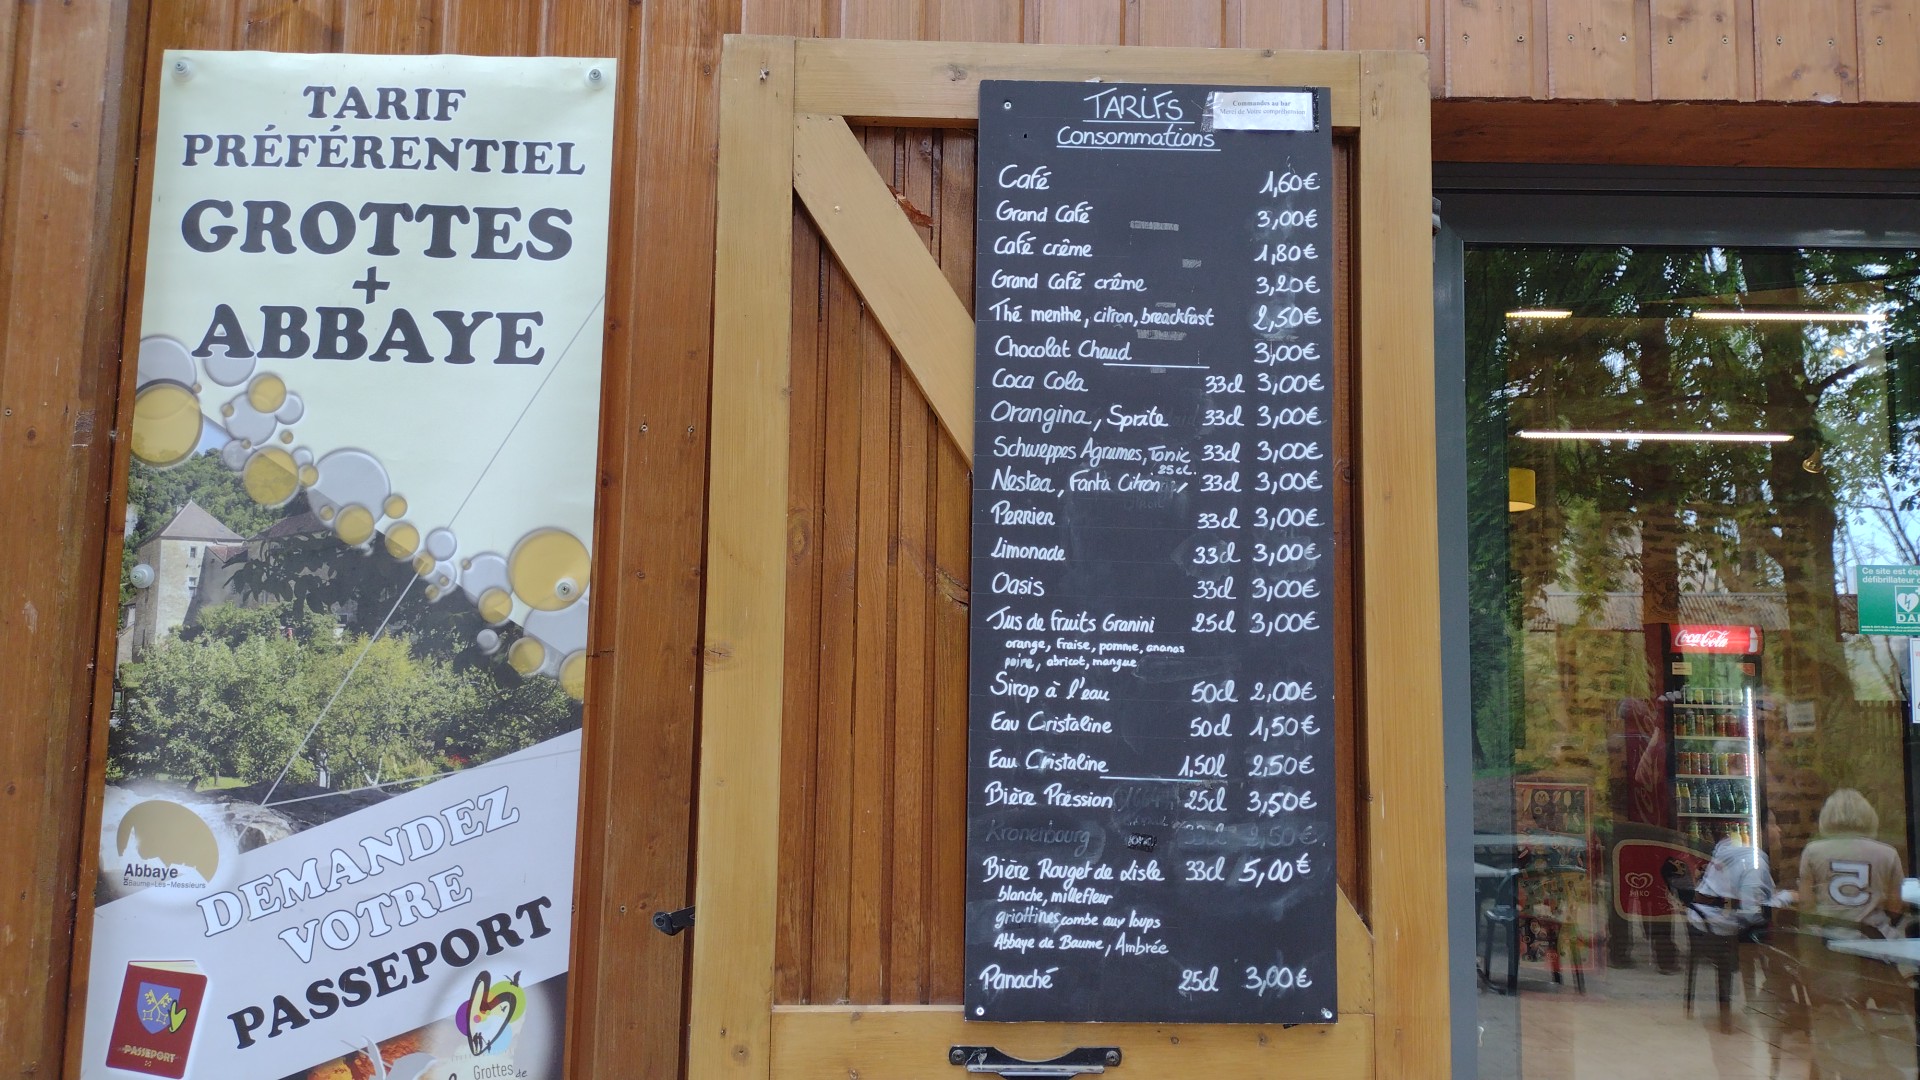 TARIF
PRÉFÉRENTIEL
GROTTES
+
ABBAYE
Abbaye
DE Baume-Les-Messieurs
DEMANDEZ
VOTRE
PASSEPORT
PASSEPORT
Grottes de
TARIFS
Consommations
Commandes au bar
Merci de Votre compréhension
Café 1,60€
Grand Café 3,00€
Café crême 1,80€
Grand Café crême 3,20€
Thé menthe, citron, breackfast 2,50€
Chocolat Chaud 3,00€
Coca Cola 33cl 3,00€
Orangina, Sprite 33cl 3,00€
Schweppes Agrumes, Tonic 33cl 3,00€
25cl.
Nestea, Fanta Citron 33cl 3,00€
Perrier 33cl 3,00€
Limonade 33cl 3,00€
Oasis 33cl 3,00€
Jus de fruits Granini 25cl 3,00€
orange, fraise, pomme, ananas
poire, abricot, mangue
Sirop à l'eau 50cl 2,00€
Eau Cristaline 50cl 1,50€
Eau Cristaline 1,50l 2,50€
Bière Préssion 25cl 3,50€
Kronenbourg 33cl 2,50€
Bière Rouget de Lisle 33cl 5,00€
blanche, millefleur
griottines, combe aux loups
Abbaye de Baume, Ambrée
Panaché 25cl 3,00€
Coca-Cola
MIKO
5
Ce site est éq
défibrillateur